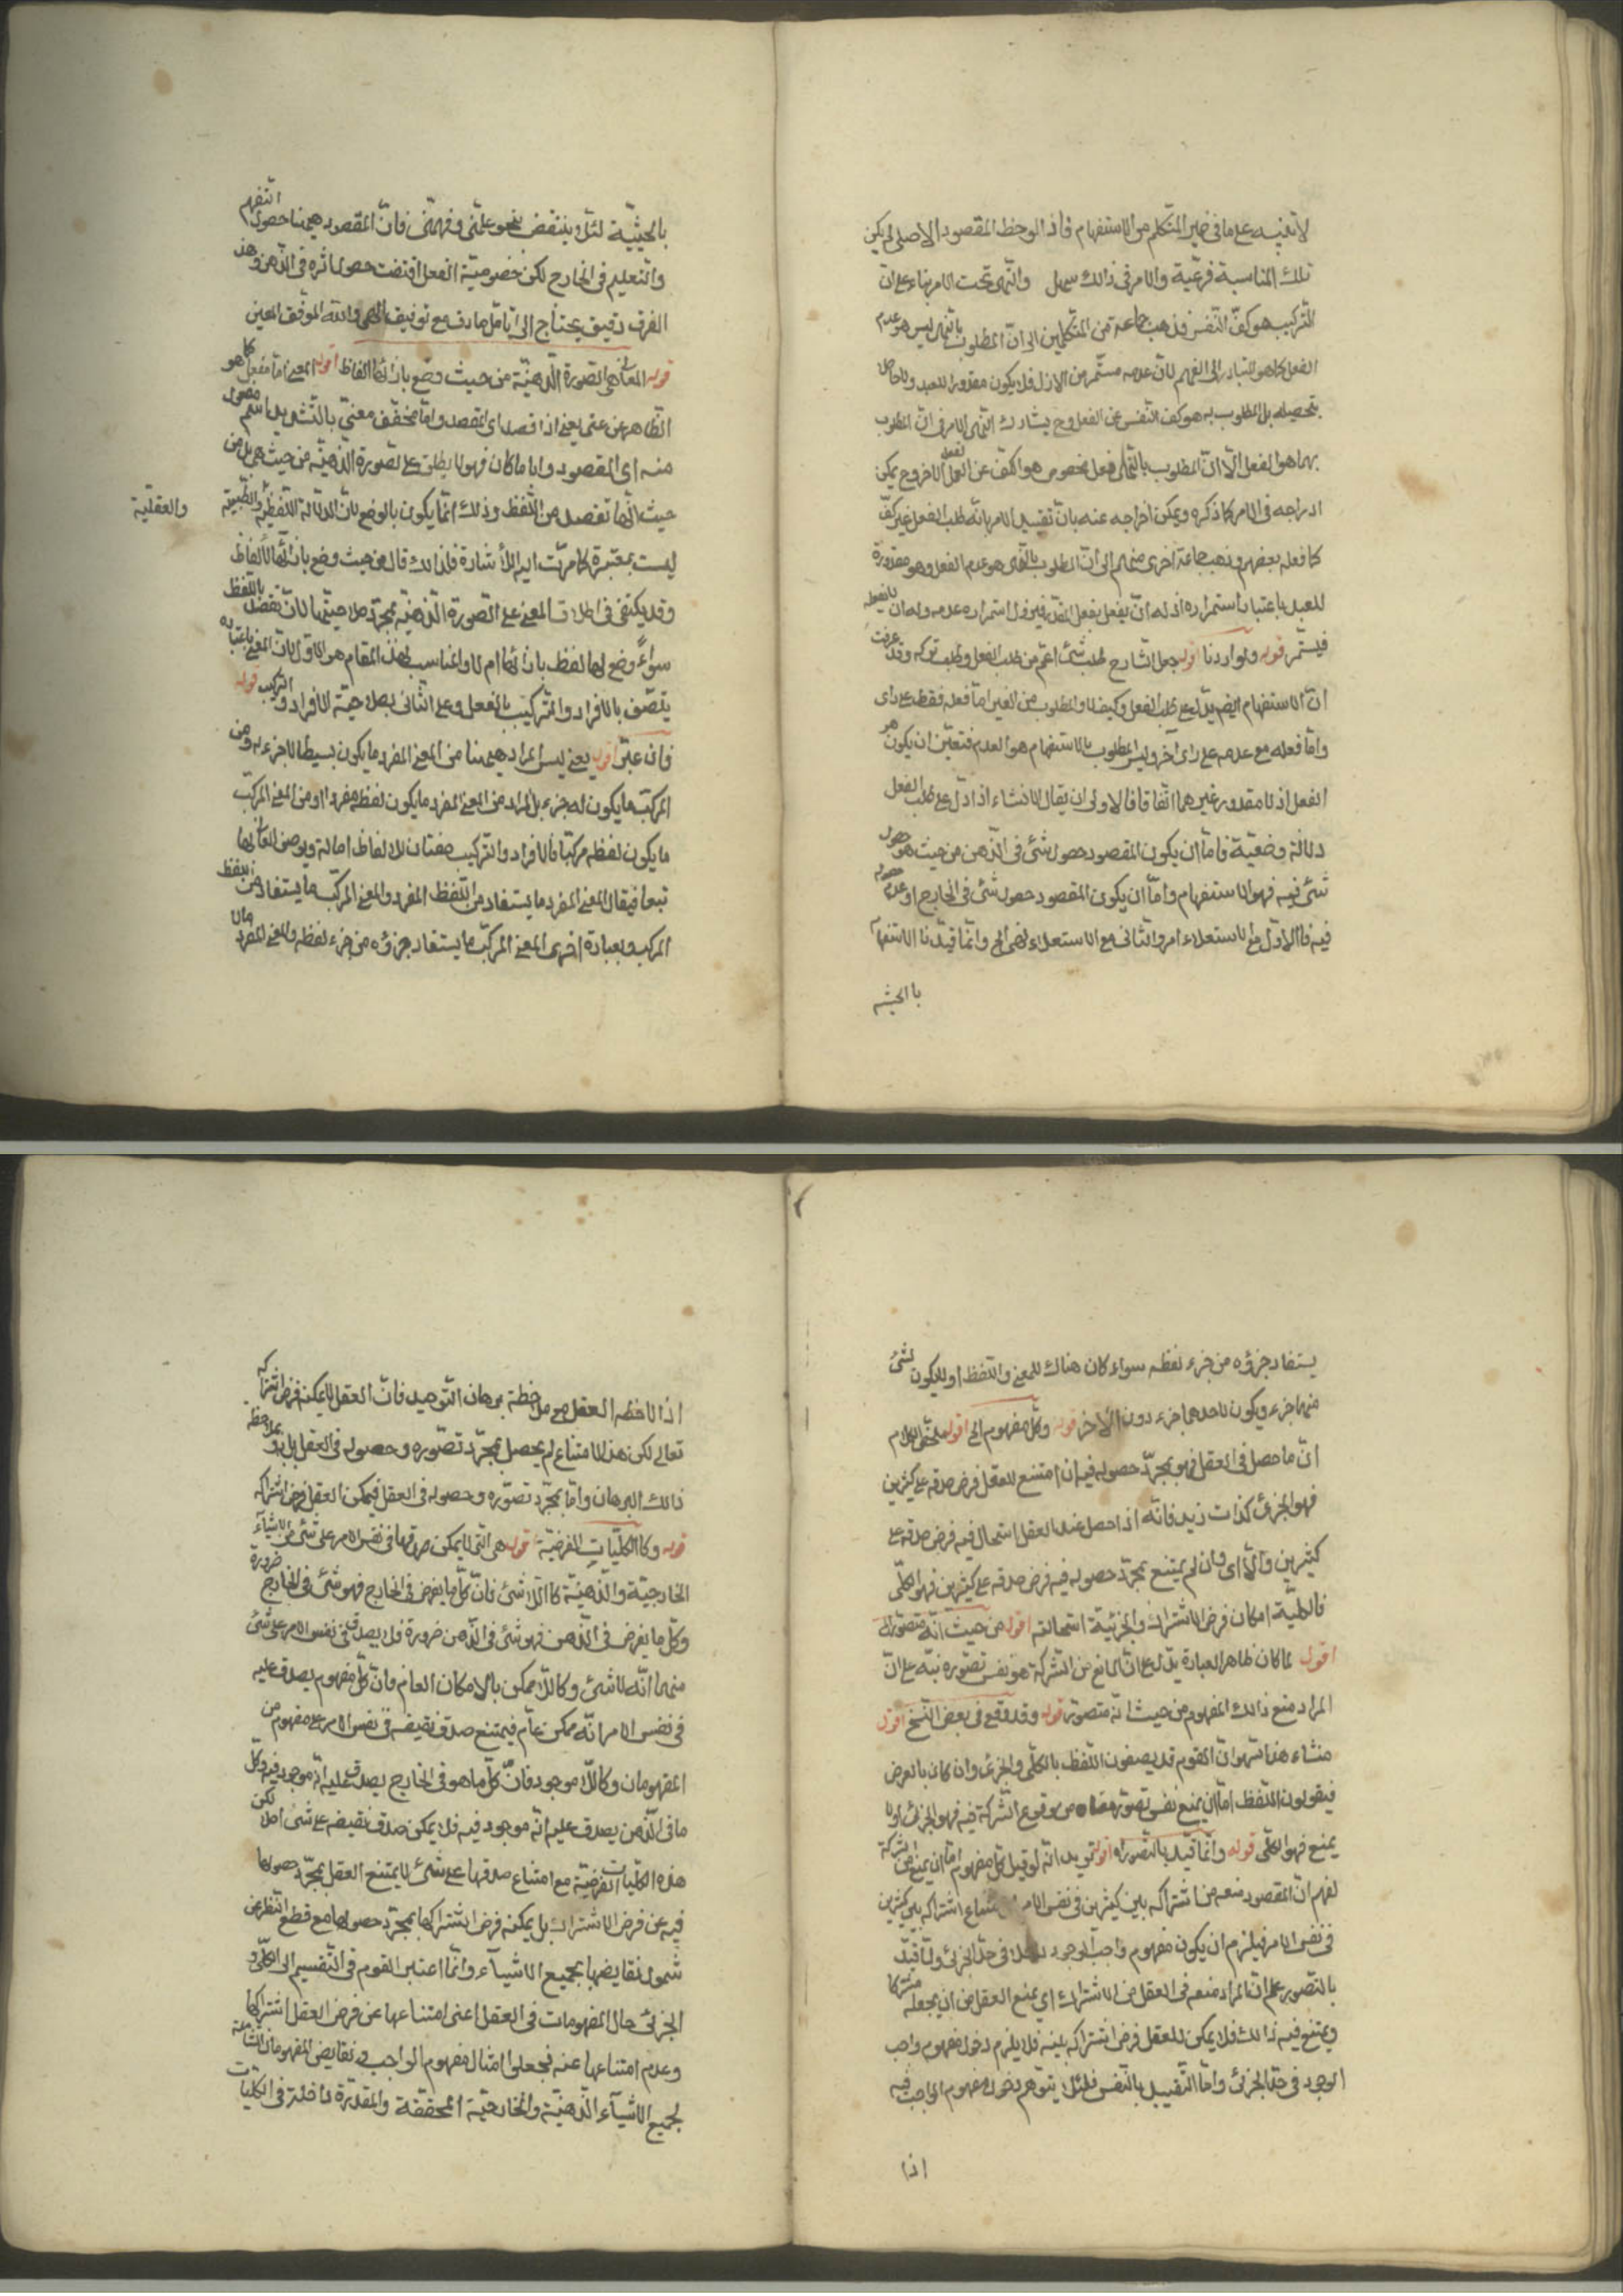 لا تنبيه على ما فى ضمير المتكلم من الاستفهام فاذا لوحظ المقصود الاصلى لم يكن
تلك المناسبة فرعية والامر فى ذالك سهل والنهى تحت الامر بناء على ان
الترك هو كفّ النفس فذهب جماعة من المتكلمين الى انّ المطلوب بالنهى ليس هو عدم
الفعل كما هو المتبادر الى الفهم لانّ عدمه مستمّر من الازل فلا يكون مقدورا للعبد ولا حاصلا
بتحصيله بل المطلوب به هو كفّ النفس عن الفعل وح يشارك النهى الامر فى انّ المطلوب
بهما هو الفعل الّا انّ المطلوب بالنهى فعل مخصوص هو الكفّ عن الفعل الاخر وح يمكن
ادراجه فى الامر كما ذكره ويمكن اخراجه عنه بان تقييد الامر بانّه طلب الفعل غير كفّ
كما فعله بعضهم وذهب جماعة اخرى منهم الى انّ المطلوب بالنهى هو عدم الفعل وهو مقدورة
للعبد باعتبار استمراره اذ له ان يفعل الفعل فيزول استمرار عدمه وله ان لا يفعله
فيستمّر قوله ولو اردنا اقول جعل الشارح طلب شئ اعمّ من طلب الفعل وطلب تركه وقد عرفت
ان الاستفهام ايضا يدلّ على طلب الفعل وكيف لا والمطلوب من الغير امّا فعله فقط على راى
وامّا فعله مع عدمه على راى آخر وليس المطلوب بالاستفهام هو العدم فتعيّن ان يكون هو
الفعل اذ لا مقدور غيرهما اتّفاقا فالاولى ان يقال الانشاء اذا دلّ على طلب الفعل
دلالة وضعيّة فامّا ان يكون المقصود حصول شئ فى الذّهن من حيث هو حصول
شئ فيه فهو الاستفهام وامّا ان يكون المقصود حصول شئ فى الخارج او عدم حصوله
فيه فالاوّل مع الاستعلاء امر والثانى مع الاستعلاء نهى الخ وانّما قيدنا الاستفهام
بالحيثيه
بالحيثيّة لئلّا ينتقض بنحو علّمنى وفهّمنى فانّ المقصود هيهنا حصول التفهم
والتعليم فى الخارج لكن خصوصيّة الفعل اقتضت حصول اثره فى الذهن وهذ
الفرق دقيق يحتاج الى تامّل صادق مع توفيق الٓهى والله الموفّق المعين
قوله المعانى هى الصّورة الذّهنيّة من حيث وضع بازائها الفاظ اقول المعنى امّا مفعل كما هو
الظاهر من عنى يعنى اذا قصد اى المقصد وامّا مخفّف معنىّ بالتّشديد اسم مفعول
منه اى المقصود وايّا ما كان فهو لا يطلق على الصورة الذّهنيّة من حيث هى بل من
حيث انّها تقصد من اللّفظ وذلك انّما يكون بالوضع لانّ الدّلالة اللّفظيّة والطّبيعيّة والعقليّة
ليست بمعتبرة كما مرّت اليه الأشارة فلذالك قال من حيث وضع بازائها الألفاظ
وقد يكتفى فى اطلاق المعنى على الصّورة الذّهنيّة بمجرّد صلاحيتها لان تقصد باللّفظ
سواءً وضع لها لفظ بازائها ام لا والمناسب لهذ المقام هو الاوّل لان المعنى باعتباره
يتّصف بالافراد والتركيب بالفعل وعلى الثانى بصلاحيّة الافراد والتركيب قوله
فان عبّر اقول يعنى ليس المراد هيهنا من المعنى المفرد ما يكون بسيطا لا جزء له ومن
المركّب ما يكون له جزء بل المراد من المعنى المفرد ما يكون لفظه مفردا او من المعنى المركّب
ما يكون لفظه مركبّا فالافراد والتركيب صفتان للالفاظ اصالة ويوصف المعانى بها
تبعا فيقال المعنى المفرد ما يستفاد من اللّفظ المفرد والمعنى المركّب ما يستفاد من اللفظ
المركب وبعبارة اخرى المعنى المركّب ما يستفاد جزؤه من جزء لفظه والمعنى المفرد ما لا
يستفاد جزؤه من جزء لفظه سواء كان هناك للمعنى واللّفظ او لا يكون لشئ
منهما جزء ويكون لاحدهما جزء دون الآخر قوله وكلّ مفهوم الخ اقول ملخّص الكلام
انّ ما حصل فى العقل فهو بمجرّد حصوله فيه ان امتنع للعقل فرض صدقه على كثيرين
فهو الجزئى كذات زيد فانّه اذا حصل عند العقل استحال فيه فرض صدقه على
كثيرين والّا اى وان لم يمتنع بمجرّد حصوله فيه فرض صدقه على كثيرين فهو الكلّى
فالكليّة امكان فرض الاشتراك والجزئية استحالته اقول من حيث انّه متصوّر الخ
اقول لما كان ظاهر العبارة يدلّ على انّ المانع من الشركة هو نفس تصوّره نبّه على انّ
المراد منع ذالك المفهوم من حيث انّه متصوّر قوله وقد وقع فى بعض النسخ اقول
منشاء هذا السّهو انّ القوم قد يصفون اللّفظ بالكلّى والجزئى وان كان بالعرض
فيقولون اللّفظ امّا ان يمنع نفس تصوّر معناه من وقوع الشركة فيه فهو الجزئى او لا
يمنع فهو الكلّى قوله وانّما قيّد بالتصوّر اقول يريد انّه لو قيل كلّ مفهوم امّا ان يمنع من الشركة
لفهم انّ المقصود منعه من اشتراكه بين كثيرين فى نفس الامر امتناع اشتراكه بين كثيرين
فى نفس الامر فيلزم ان يكون مفهوم واجب الوجود داخلا فى حدّ الجزئى ولمّا قيّد
بالتصوّر علم انّ المراد منعه فى العقل من الاشتراك اى يمنع العقل من ان يجعله مشتركا
ويمتنع فيه ذالك فلا يمكن للعقل فرض اشتراكه بينه فلا يلزم دخول مفهوم واجب
الوجود فى حدّ الجزئى وامّا التقييد بالنّفس فلئلّا يتوهّم دخول مفهوم الواجب فيه
اذا
اذا لاحظه العقل مع ملاحظة برهان التوحيد فانّ العقل لا يمكنه فرض اشتراكه
تعالى لكن هذ الامتناع لم يحصل بمجرّد تصّوره وحصوله فى العقل بل بملاحظة
ذالك البرهان وامّا بمجرّد تصوّره وحصوله فى العقل فيمكن العقل فرض اشتراكه
قوله وكالكليّات الفرضيّة قوله هى التى لا يمكن صدقها فى نفس الامر على شئ من الاشيآء
الخارجيّة والذّهنيّة كاللّا شئ فانّ كلّ ما يفرض فى الخارج فهو شئ فى الخارج ضرورة
وكلّ ما يفرض فى الذّهن فهو شئ فى الذّهن ضرورة فلا يصدق فى نفس الامر على شئ
منهما انّه لا شئ وكاللّا ممكن بالامكان العام فانّ كلّ مفهوم يصدق عليه
فى نفس الامر انّه ممكن عامّ فيمتنع صدق نقيضه فى نفس الامر على مفهوم من
المفهومات وكاللّا موجود فانّ كلّ ما هو فى الخارج يصدق عليه انّه موجود فيه وكلّ
ما فى الذّهن يصدق عليه انّه موجود فيه فلا يمكن صدق نقيضه على شئ اصلا لكن
هذه الكليّات الفرضيّة مع امتناع صدقها على شئ لا يمتنع العقل بمجرّد حصولها
فيه عن فرض الاشتراك بل يمكنه فرض اشتراكها بمجرّد حصولها مع قطع النّظر عن
شمول نقايضها بجميع الاشيآء وانّما اعتبر القوم فى التّقسيم الى الكلّى و
الجزئى حال المفهومات فى العقل اعنى امتناعها عن فرض العقل اشتراكها
وعدم امتناعها عنه فجعلوا امثال مفهوم الواجب و نقايض المفهومات الشاملة
لجميع الاشيآء الذّهنيّة والخارجيّة المحقّقة والمقدّرة داخلة فى الكليّات